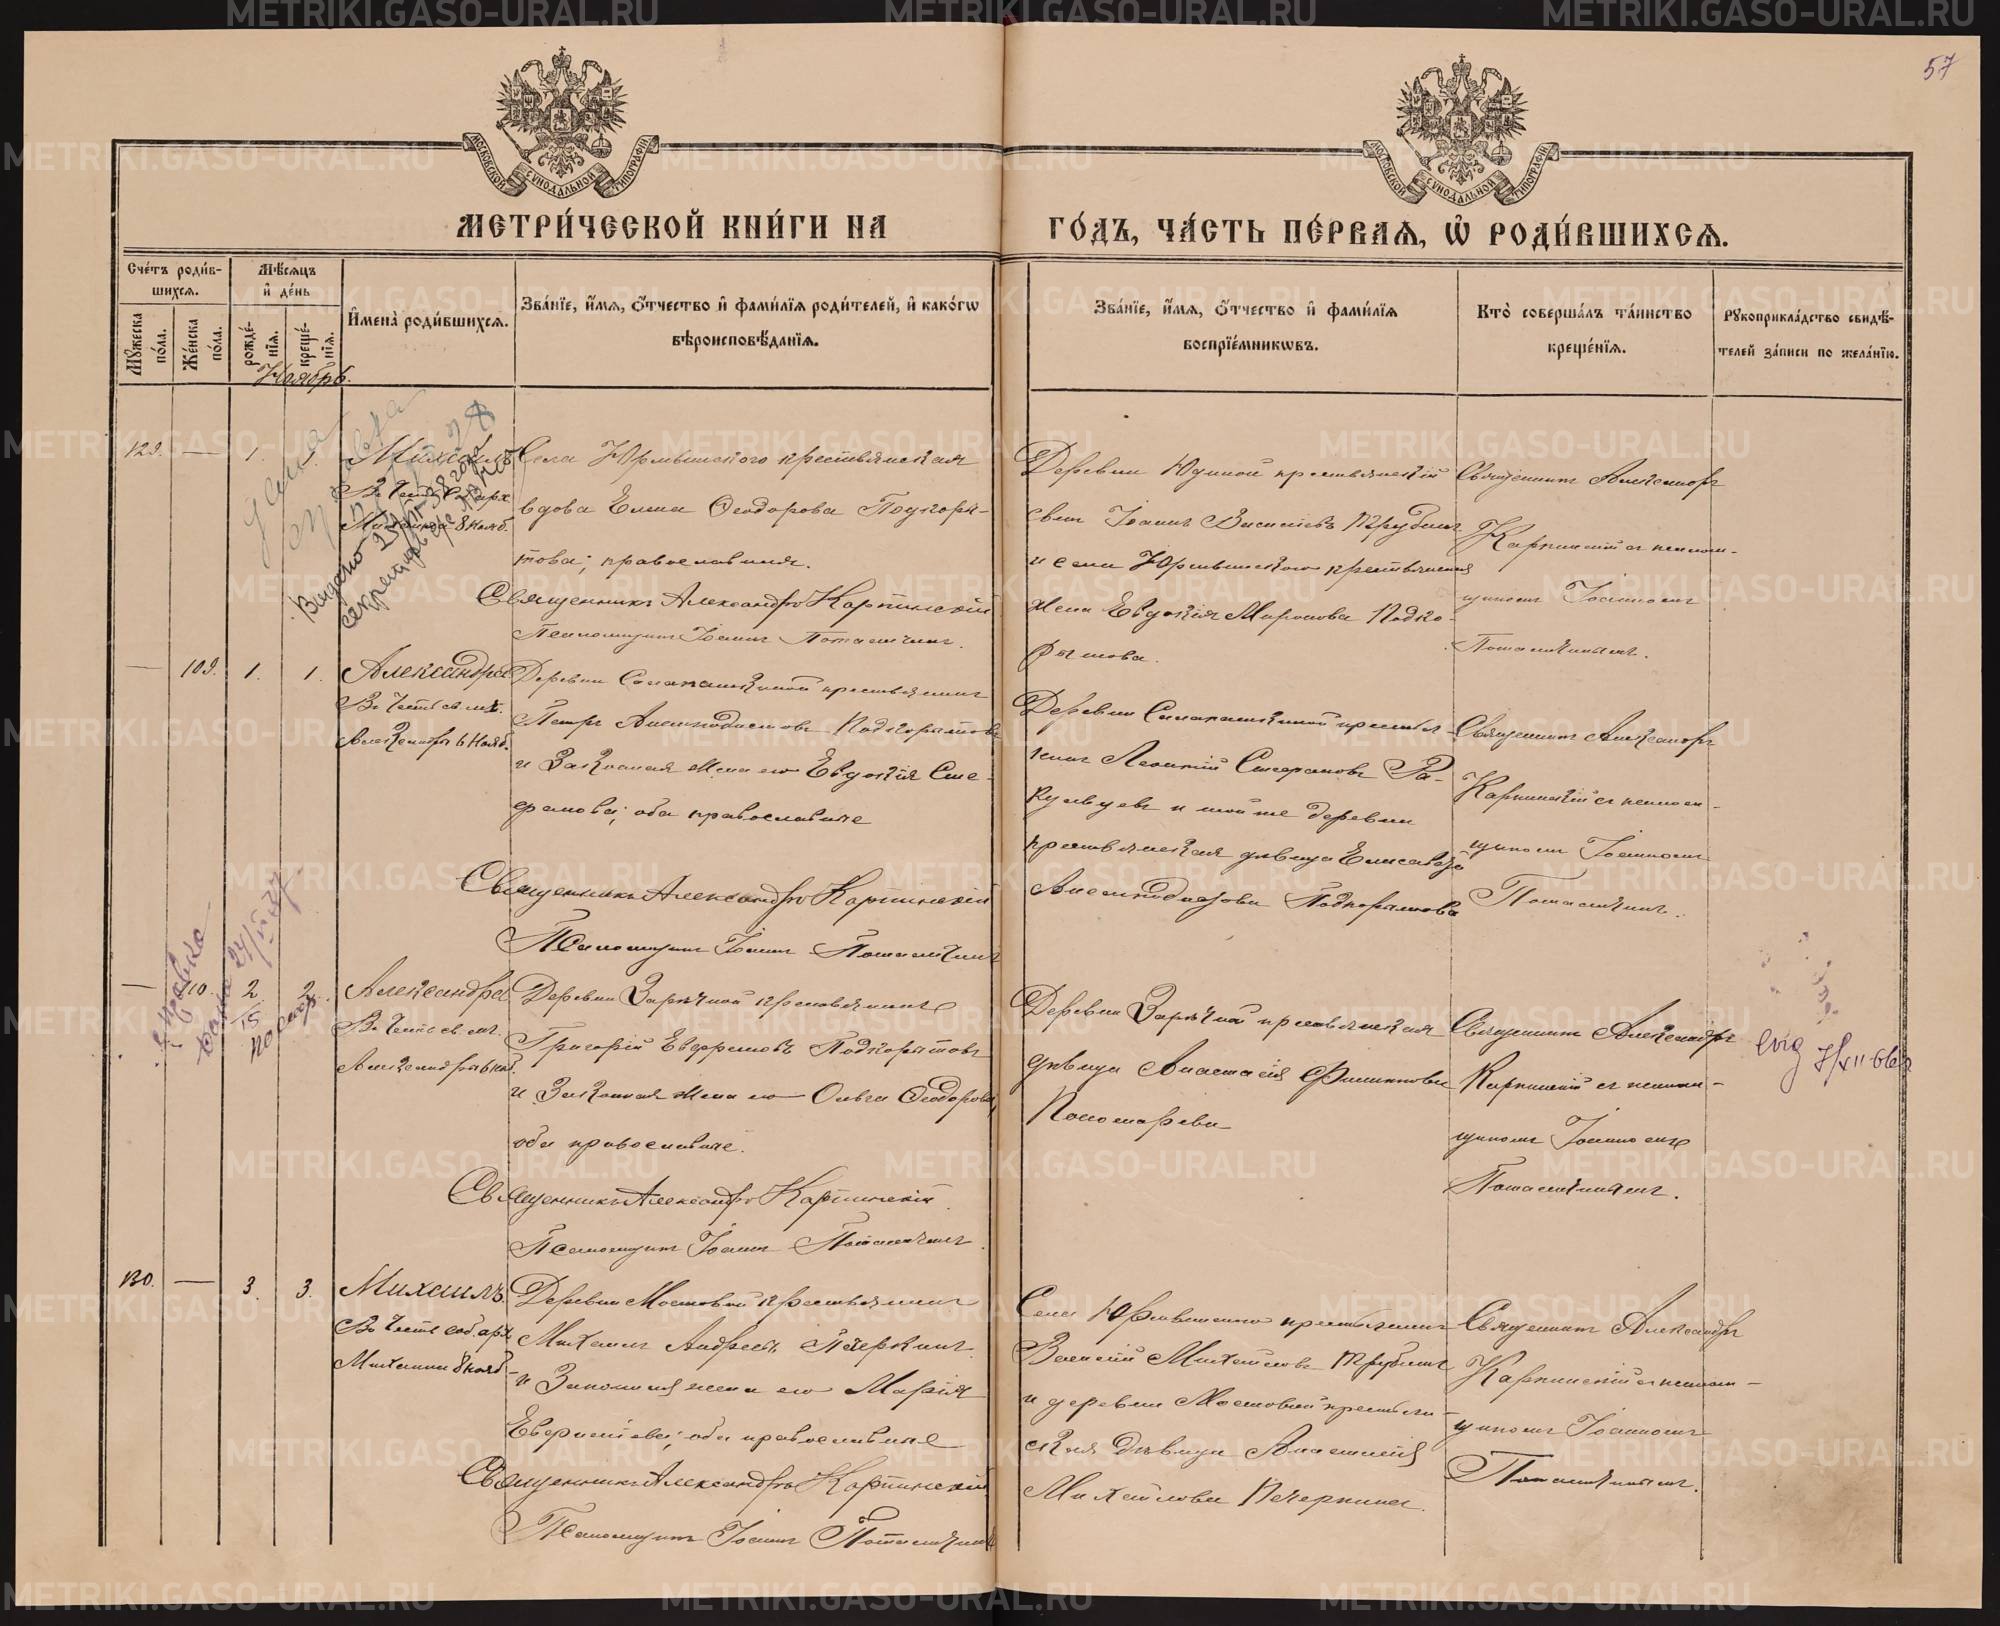 57
МОСКОВСКОЙ СѴНОДАЛЬНОЙ ТИПОГРАФІИ
МОСКОВСКОЙ СѴНОДАЛЬНОЙ ТИПОГРАФІИ
МЕТРИ́ЧЕСКОЙ КНИ́ГИ НА
ГО́ДЪ, ЧА́СТЬ ПЕ́РВАѦ, Ѡ РОДИ́ВШИХСѦ.
Сче́тъ роди́в-
шихсѧ.
Мѣ́сѧцъ
и҆ де́нь
Мꙋ́жеска по́ла.
Же́нска по́ла.
рожде́-
нїѧ.
креще́-
нїѧ.
И҆мена̀ роди́вшихсѧ.
Зва́нїе, и҆́мѧ, ѻ҆́тчество и҆ фами́лїѧ роди́телей, и҆ како́гѡ
вѣроисповѣ́данїѧ.
Зва́нїе, и҆́мѧ, ѻ҆́тчество и҆ фами́лїѧ
воспрїе́мникѡвъ.
Кто̀ соверша́лъ та́инство
креще́нїѧ.
Рꙋкоприкла́дство свидѣ́-
телей за́писи по жела́нїю.
Ноябрь.
129. — 1.
Михаилъ
Въ честь Соб. арх.
Михаила 8 нояб.
Выдано
секретарь
Села Юрмытскаго крестьянская
вдова Елена Ѳеодорова Подкоры-
това; православная.
Священникъ Александръ Карпинскій
Псаломщикъ Іоаннъ Поташкинъ.
Деревни Юдиной крестьянскій
сынъ Іоаннъ Васильевъ Трубинъ
и села Юрмытскаго крестьянская
жена Евдокія Миронова Подко-
рытова.
Священникъ Александръ
Карпинскій съ псалом-
щикомъ Іоанномъ
Поташкинымъ.
— 109. 1. 1.
Александра
Въ честь св. мч.
Александры 6 нояб.
Деревни крестьянинъ
Петръ Подкорытовъ
и законная жена его Евдокія Сте-
фанова; оба православные
Священникъ Александръ Карпинскій
Псаломщикъ Іоаннъ Поташкинъ
Деревни крестья-
нинъ Леонтій Стефановъ Ра-
и той же деревни
крестьянская дѣвица Елисавета
Подкорытова
Священникъ Александръ
Карпинскій съ псалом-
щикомъ Іоанномъ
Поташкинымъ.
справка
дана 27/
— 110. 2 2
15
Александра
Въ честь св. мч.
Александры 6 нояб.
Деревни Зарѣчной крестьянинъ
Григорій Евфремовъ Подкорытовъ
и законная жена его Ольга Ѳеодорова,
оба православные.
Священникъ Александръ Карпинскій
Псаломщикъ Іоаннъ Поташкинъ.
Деревни Зарѣчной крестьянская
дѣвица Анастасія Филиппова
Пономарева
Священникъ Александръ
Карпинскій съ псалом-
щикомъ Іоанномъ
Поташкинымъ.
130. — 3. 3.
Михаилъ.
Въ честь соб. арх.
Михаила 8 нояб.
Деревни Мостовой крестьянинъ
Михаилъ Андреевъ Печеркинъ
и законная жена его Марія
оба православные
Священникъ Александръ Карпинскій
Псаломщикъ Іоаннъ Поташкинъ
Села Юрмытскаго крестьянинъ
Василій Михайловъ Трубинъ
и деревни Мостовой крестьян-
ская дѣвица Анастасія
Михайлова Печеркина.
Священникъ Александръ
Карпинскій съ псалом-
щикомъ Іоанномъ
Поташкинымъ.
METRIKI.GASO-URAL.RU